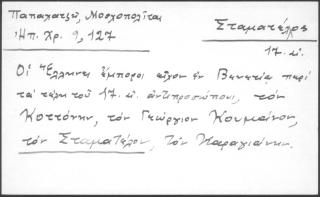 Παπαχατζῆ, Μοσχοπολῖται
Ἠπ. Χρ. 9, 127
Σταματέλος
17. αἰ.
Οἱ Ἕλληνες ἔμποροι εἶχον ἐν Βενετίᾳ περὶ
τὰ τέλη τοῦ 17. αἰ. ἀντιπροσώπους, τὸν
Κοττόνην, τὸν Γεώργιον Κουμᾶνον,
τὸν Σταματέλον, τὸν Καραγιάννην.